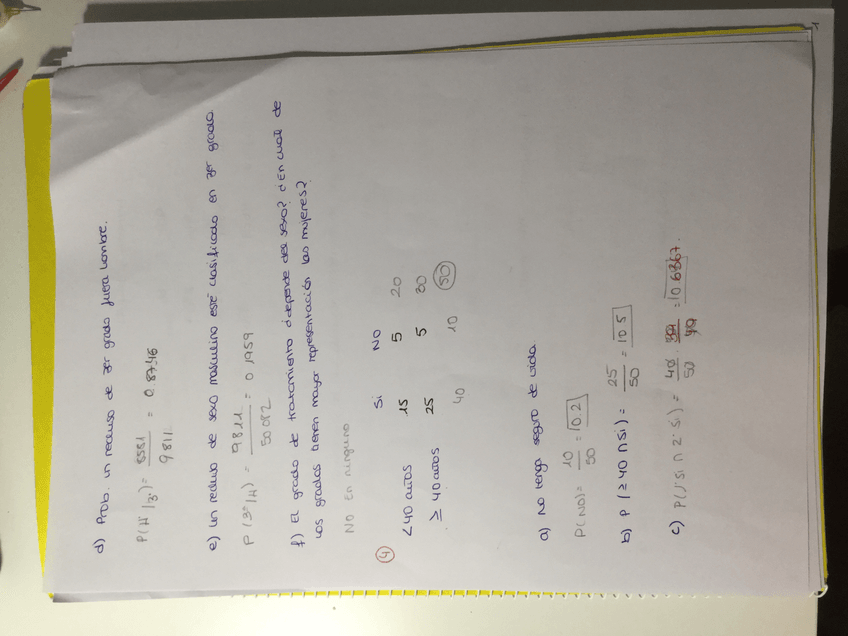 d) Prob. un recluso de 3er grado fuera hombre.
P(H/3º) = 8581 / 9811 = 0.8746
e) un recluso de sexo masculino esté clasificado en 3er grado.
P(3º/H) = 9811 / 50082 = 0,1959
f) El grado de tratamiento ¿depende del sexo? ¿En cuál de
los grados tienen mayor representación las mujeres?
NO en ninguno
4 Si NO
<40 años 15 5 20
≥ 40 años 25 5 30
40 10 50
a) No tenga seguro de vida
P(NO) = 10/50 = 0.2
b) P(≥40 ∩ Si) = 25/50 = 0.5
c) P(1ºSi ∩ 2ºSi) = 40/50 ·